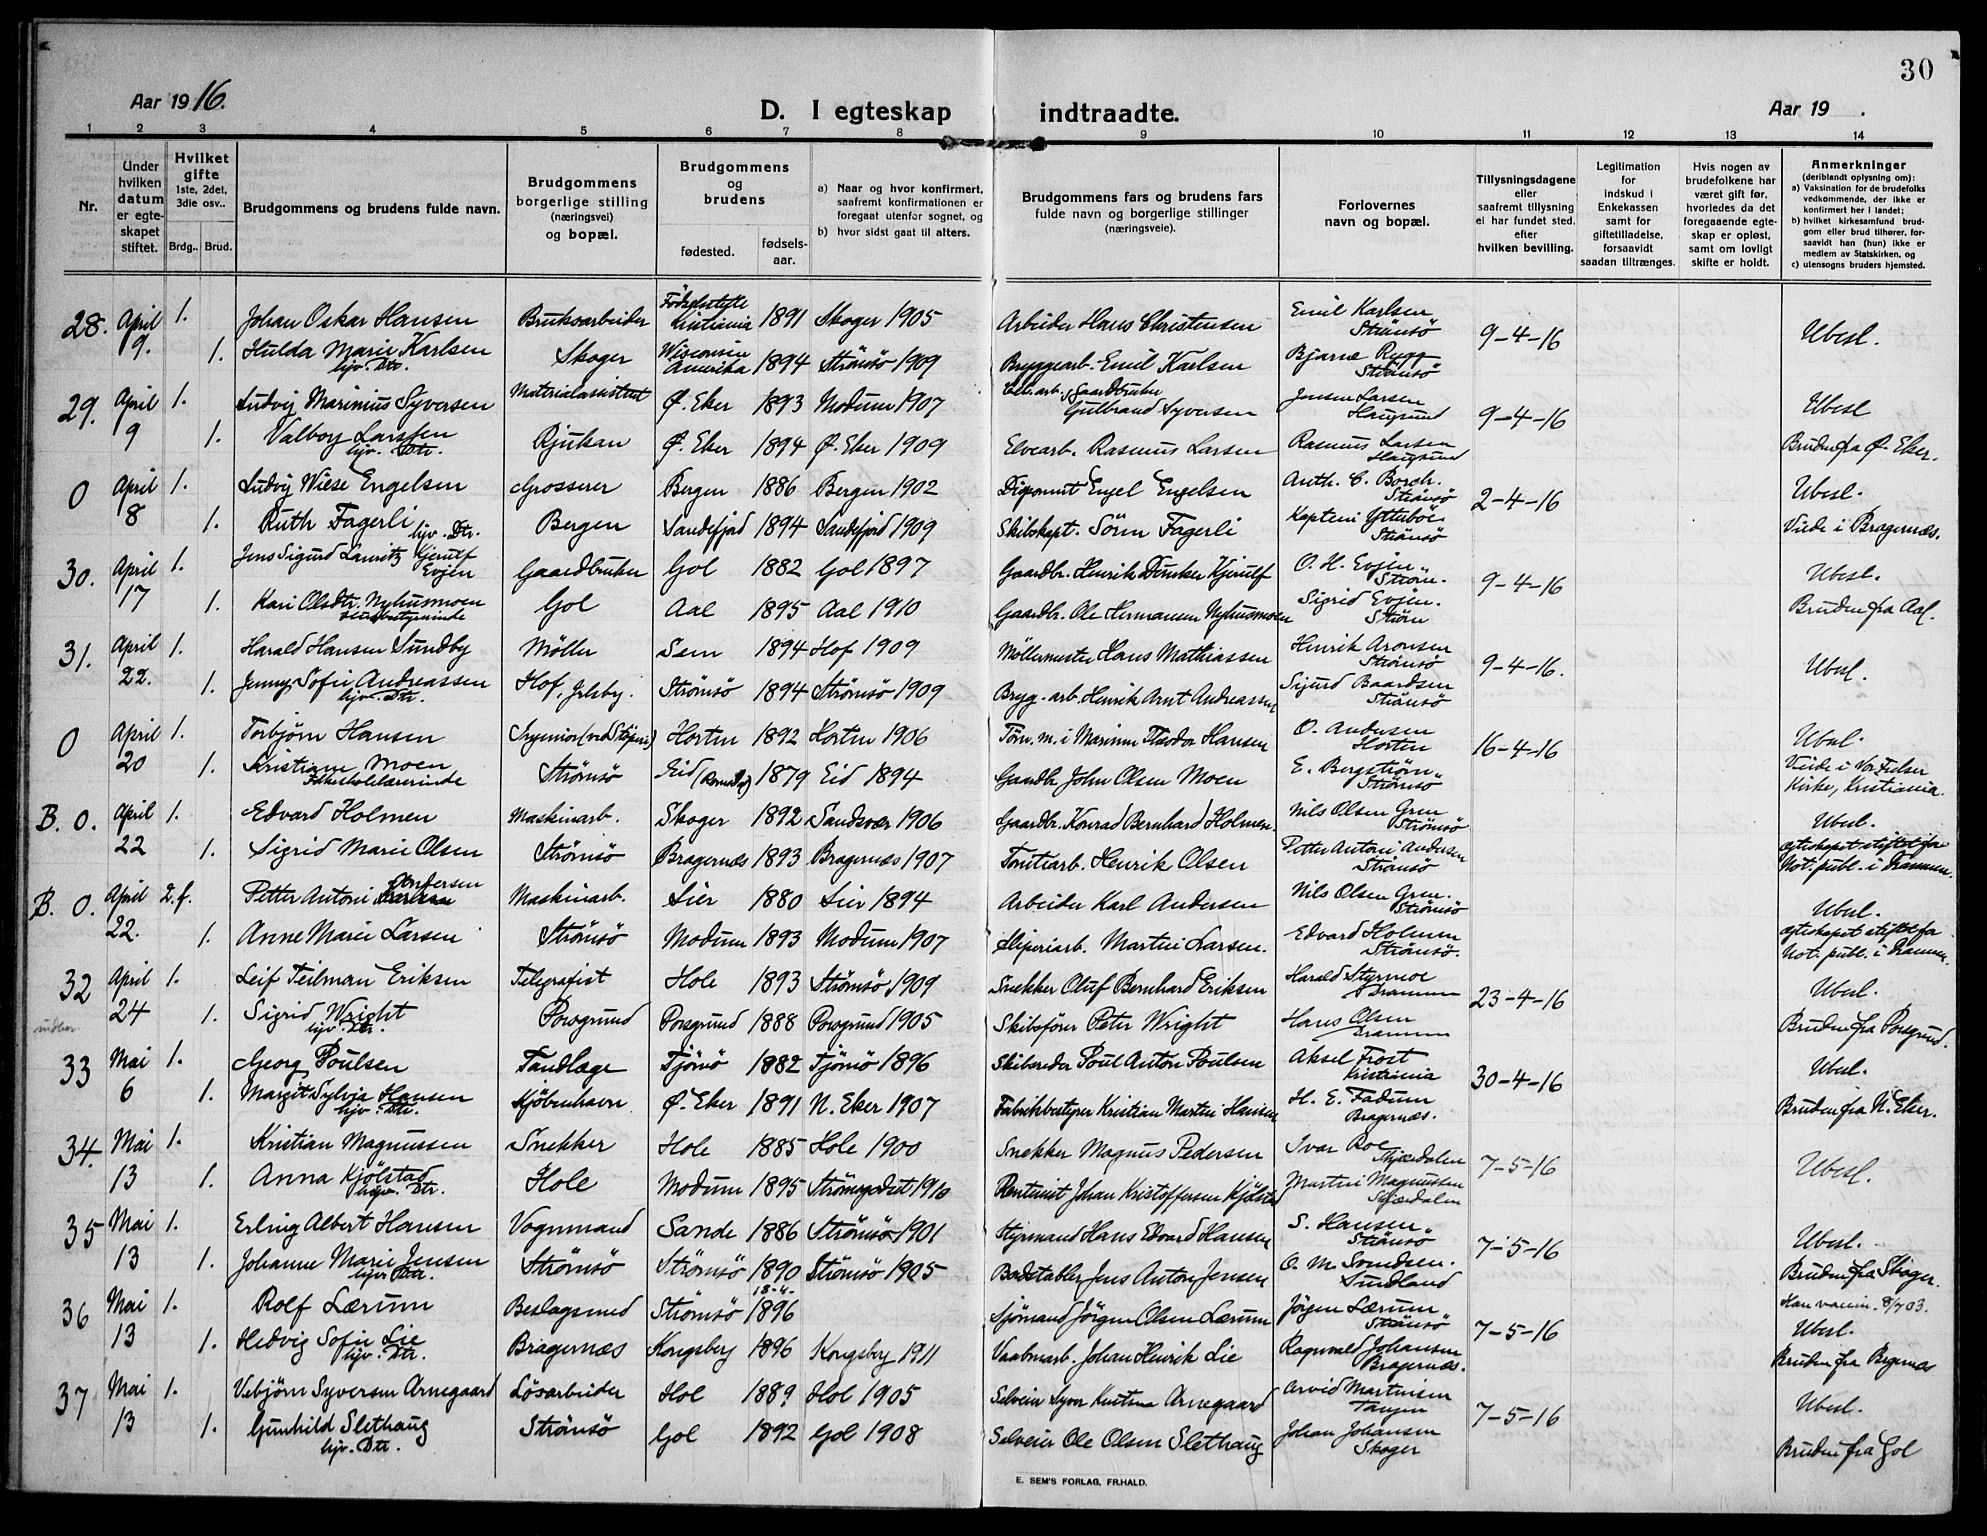 30
Aar 1916.
D. I egteskap indtraadte.
Aar 19 .
1 2 3 4 5 6 7 8 9 10 11 12 13 14
Nr.
Under hvilken datum er egteskapet stiftet.
Hvilket gifte 1ste, 2det, 3die osv..
Brdg.. Brud.
Brudgommens og brudens fulde navn.
Brudgommens borgerlige stilling (næringsvei) og bopæl.
Brudgommens og brudens
fødested. fødselsaar.
a) Naar og hvor konfirmert, saafremt konfirmationen er foregaat utenfor sognet, og
b) hvor sidst gaat til alters.
Brudgommens fars og brudens fars fulde navn og borgerlige stillinger (næringsveie).
Forlovernes navn og bopæl.
Tillysningsdagene eller saafremt tillysning ei har fundet sted. efter hvilken bevilling.
Legitimation for indskud i Enkekassen samt for giftetilladelse, forsaavidt saadan tiltrænges.
Hvis nogen av brudefolkene har været gift før, hvorledes da det foregaaende egteskap er opløst, samt om lovligt skifte er holdt.
Anmerkninger (deriblandt oplysning om):
a) Vaksination for de brudefolks vedkommende, der ikke er konfirmert her i landet;
b) hvilket kirkesamfund brudgom eller brud tilhører, forsaavidt han (hun) ikke er medlem av Statskirken, og
c) utensogns bruders hjemsted.
28. April 9. 1. Johan Oskar Hansen Bruksarbeider Fødselsstiftelse Kristiania 1891 Skoger 1905 Arbeider Hans Christensen Emil Karlsen Strömsö 9-4-16 Ubesl.
1. Hulda Marie Karlsen hjv. Dtr. Skoger Wisconsin Amerika 1894 Strömsö 1909 Bryggearb. Emil Karlsen Bjarne Rygg Strömsö
29. April 9 1. Ludvig Marinius Syversen Materialassistent Ø. Eker 1893 Modum 1907 Gaardbruker Gulbrand Syversen Jensen Larsen Haugsund 9-4-16 Ubesl
1. Valborg Larssen hjv. Dtr. Rjukan Ø. Eker 1894 Ø. Eker 1909 Elvearb. Rasmus Larsen Rasmus Larsen Haugsund Bruden fra Ø. Eker.
0 April 8 1. Ludvig Wiese Engelsen Grosserer Bergen 1886 Bergen 1902 Disponent Engel Engelsen Anth. C. Borch. Strömsö 2-4-16 Ubesl.
1. Ruth Fagerli hjv. Dtr. Bergen Sandefjord 1894 Sandefjord 1909 Skibskapt. Sörn Fagerli Kaptein Ytteböe Strömsö Viede i Bragernæs.
30. April 17 1. Jens Sigurd Lauritz Kjerulf Evjen Gaardbruker Gol 1882 Gol 1897 Gaardbr. Henrik Duncker Kjerulf O. H. Evjen Ström. 9-4-16 Ubesl.
1. Kari Olsdtr. Nyhusmoen Gol Aal 1895 Aal 1910 Gaardbr. Ole Hermansen Nyhusmoen Sigrid Evjen. Ström Bruden fra Aal.
31. April 22. 1. Harald Hansen Sundby Möller Sem 1894 Hof 1909 Möllermester Hans Mathiassen Henrik Aronsen Strömsö 9-4-16. Ubesl.
1. Jenny Sofie Andreassen hjv. Dtr. Hof, Jelsby. Strömsö 1894 Strömsö 1909 Brygg. arb. Henrik Arnt Andreassen Sigurd Baardsen Strömsö
0 April 20 1. Torbjörn Hansen Ingeniør (ved Stöperi) Horten 1892 Horten 1906 Töm. m. i Marinen Theodor Hansen O. Andersen Horten 16-4-16 Ubesl.
1. Kristiane Moen Folkeskolelærerinde Strömsö Eid (Romsdal) 1879 Eid 1894 Gaardbr John Olsen Moen E. Bergström Strömsö Viede i Vor Frelser Kirke, Kristiania.
B. 0. April 22 1. Edvard Holmen Maskinarb. Skoger 1892 Sandsvær 1906 Gaardbr. Konrad Bernhard Holmen. Nils Olsen Gren Strömsö Ubesl.
1. Sigrid Marie Olsen Strömsö Bragernæs 1893 Bragernæs 1907 Tomtearb. Henrik Olsen Petter Antoni Andersen Strömsö egteskapet stiftet for Not. publ. i Drammen.
B. 0. April 22. 2. f. Petter Antoni Andersen Maskinarb. Lier 1880 Lier 1894 Arbeider Karl Andersen Nils Olsen Gren. Strömsö Ubesl.
1. Anne Marie Larsen Strömsö Modum 1893 Modum 1907 Sliperiarb. Martin Larsen. Edvard Holmen Strömsö. egteskapet stiftet for Not. publ. i Drammen.
32 April 24 1. Leif Teilman Eriksen Telegrafist Hole 1893 Strömsö 1909 Snekker Oluf Bernhard Eriksen Harald Styrmoe Drammen 23-4-16 Ubesl.
1. Sigrid Wright hjv. Dtr. Porsgrund Porsgrund 1888 Porsgrund 1905 Skibsförer Peter Wright Hans Olsen Drammen Bruden fra Porsgrund.
33 Mai 6 1. Georg Poulsen Tandlæge Tjömö 1882 Tjömö 1896 Skibsreder Poul Anton Poulsen Aksel Frost Kristiania 30-4-16 Ubesl.
1. Margit Sylvia Hansen hjv. Dtr. Kjöbenhavn Ø. Eker 1891 N. Eker 1907 Fabrikbestyrer Kristian Martin Hansen H. E. Fadum Bragernæs. Bruden fra N. Eker.
34. Mai 13 1. Kristian Magnussen Snekker Hole 1885 Hole 1900 Snekker Magnus Pedersen Ivar Roe Skjærdalen 7-5-16 Ubesl.
1. Anna Kjölstad hjv. Dtr. Hole Modum 1895 Strömsgodset 1910 Rentenist Johan Kristoffersen Kjölstad Martin Magnussen Skjærdalen
35 Mai 13 1. Erling Albert Hansen Vognmand Sande 1886 Strömsö 1901 Styrmand Hans Edvard Hansen S. Hansen Strömsö 7-5-16 Ubesl.
1. Johanne Marie Jensen hjv. Dtr. Strömsö Strömsö 1890 Strömsö 1905 Badstabler Jens Anton Jensen O. M. Svendsen. Sundland Bruden fra Skoger.
36 Mai 13 1. Rolf Lærum Beslagsmed Strömsö 18-4. 1896 Sjömand Jörgen Olsen Lærum Jörgen Lærum Strömsö 7-5-16 Han vaccin. 8/7 03. Ubesl.
1. Hedvig Sofie Lie hjv. Dtr. Bragernæs Kongsberg 1896 Kongsberg 1911 Vaabenarb. Johan Henrik Lie Ragnvald Johansen Bragernæs. Bruden fra Bragernæs
37 Mai 13 1. Vebjörn Syversen Arnegaard Lösarbeider Hol 1889 Hol 1905 Selveier Syver Knutsen Arnegaard Arvid Martinsen Tangen 7-5-16 Ubesl.
1. Gunhild Slethaug hjv. Dtr. Strömsö Gol 1892 Gol 1908 Selveier Ole Olsen Slethaug Johan Johansen Skoger Bruden fra Gol
E. SEM'S FORLAG, FR.HALD.